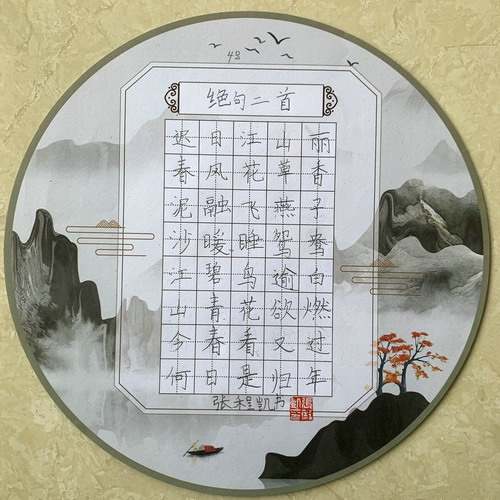 48
绝句二首
迟日江山丽
春风花草香
泥融飞燕子
沙暖睡鸳鸯
江碧鸟逾白
山青花欲燃
今春看又过
何日是归年
张程凯书